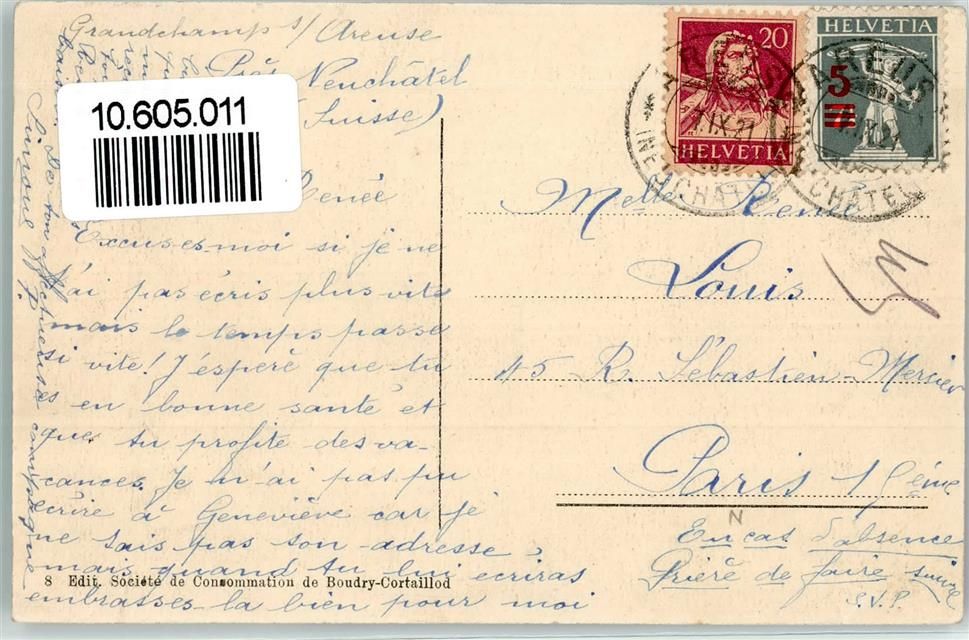 Grandchamp s/ Areuse
Près Neuchâtel
(Suisse)
10.605.011
Renée
Excuses-moi si je ne
t'ai pas écris plus vite
mais le temps passe
si vite! J'espère que tu
es en bonne santé et
que tu profite des va-
cances. Je n'ai pas pu
écrire à Geneviève car je
ne sais pas son adresse,
mais quand tu lui écriras
embrasses-la bien pour moi
De ton affectueuse compagne
Simone
20
HELVETIA
HELVETIA
5
AREUSE
IX.21
(NEUCHATEL)
Melle Renée
Louis
45 R. Sébastien-Mercier
Paris 15ème
N
En cas d'absence
Prière de faire suivre
S.V.P.
8 Edit. Société de Consommation de Boudry-Cortaillod